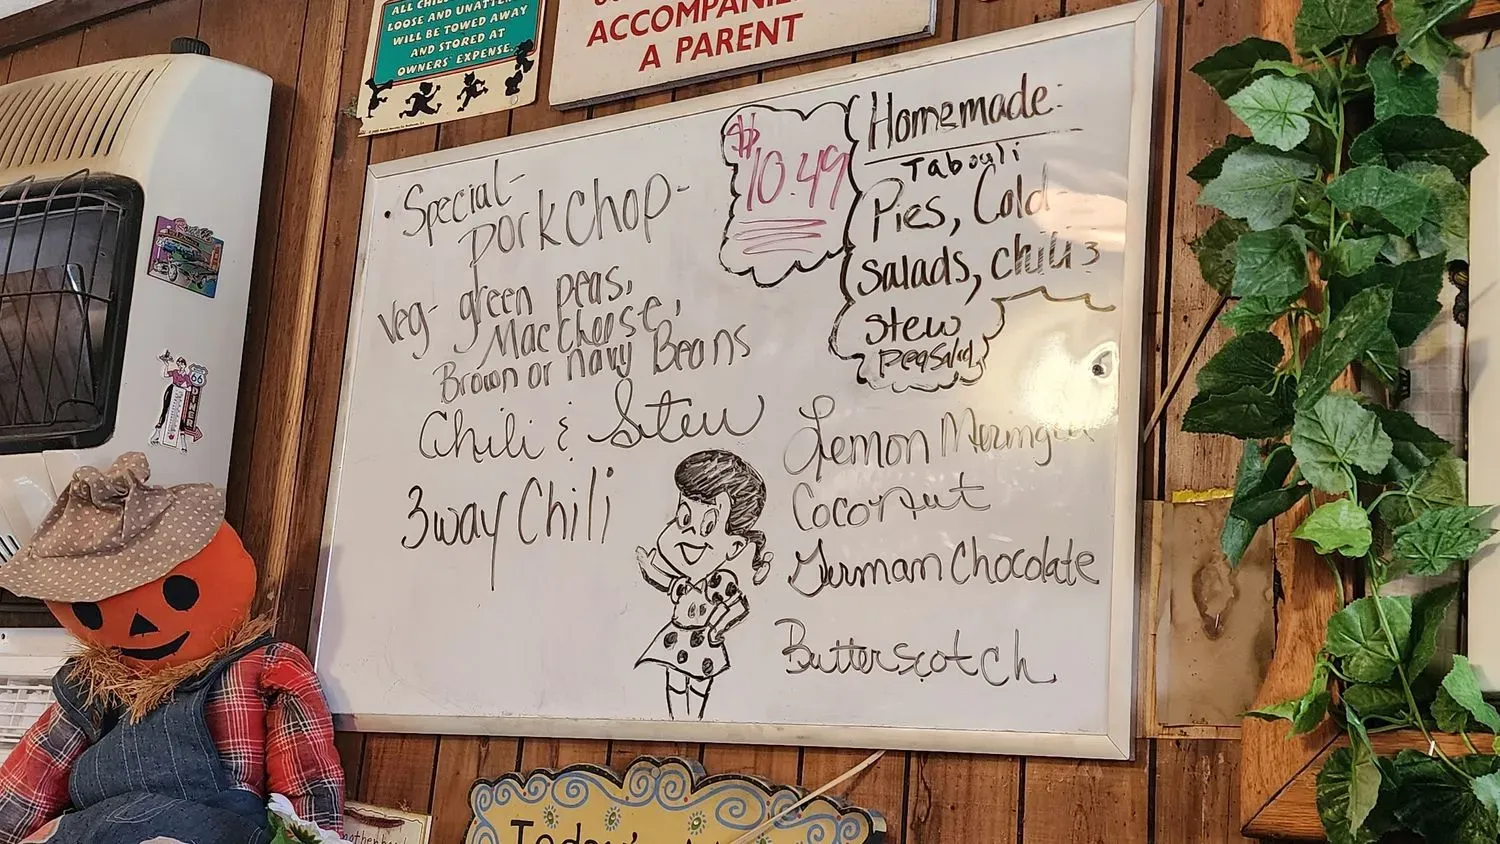 ALL CHIL
LOOSE AND UNATT
WILL BE TOWED AWAY
AND STORED AT
OWNERS' EXPENSE.
ACCOMPANIE
A PARENT
• Special-
porkChop-
veg- green peas,
Mac Cheese,
Brown or navy Beans
Chili & Stew
3way Chili
$
10.49
Homemade:
Tabouli
Pies, Cold
Salads, chili &
Stew
peasalad
Lemon Meringue
Coconut
German Chocolate
Butterscotch
66
DINER
Today's